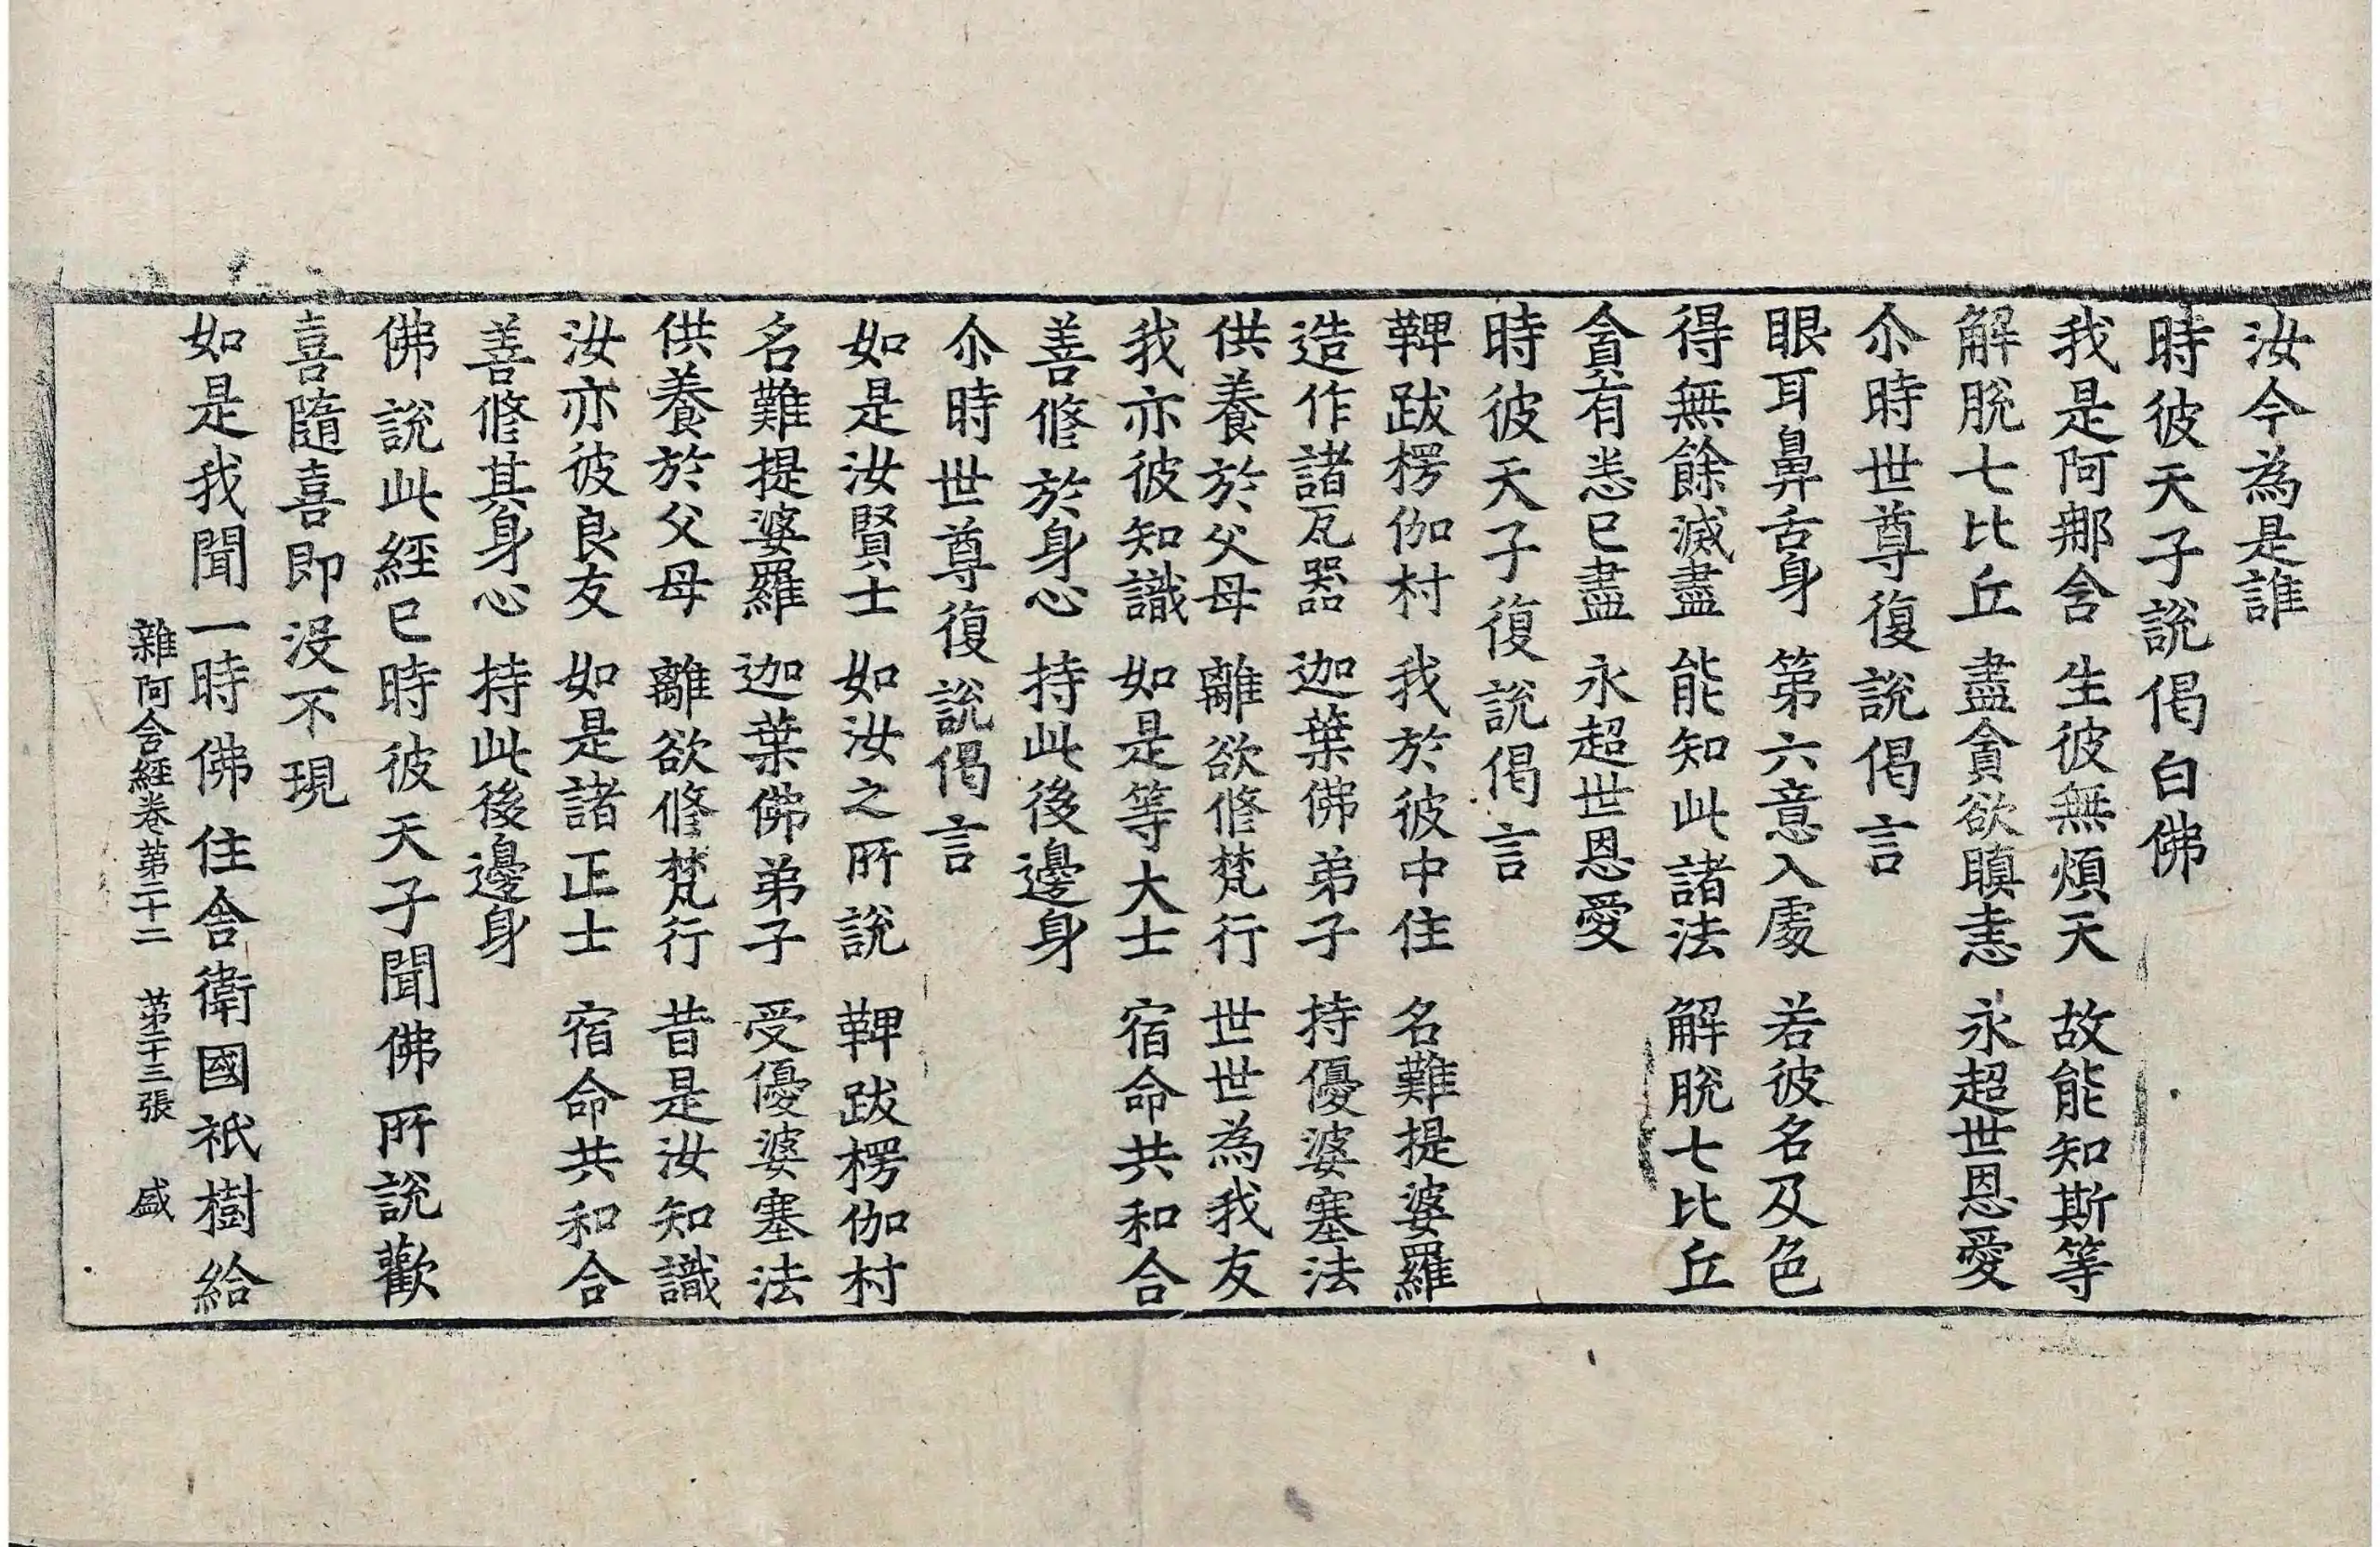 汝今為是誰
時彼天子說偈白佛
我是阿那舍 生彼無煩天 故能知斯等
解脫七比丘 盡貪欲瞋恚 永超世恩愛
尒時世尊復說偈言
眼耳鼻舌身 第六意入處 若彼名及色
得無餘滅盡 能知此諸法 解脫七比丘
貪有悉已盡 永超世恩愛
時彼天子復說偈言
鞞跋楞伽村 我於彼中住 名難提婆羅
造作諸瓦器 迦葉佛弟子 持優婆塞法
供養於父母 離欲修梵行 世世為我友
我亦彼知識 如是等大士 宿命共和合
善修於身心 持此後邊身
尒時世尊復說偈言
如是汝賢士 如汝之所說 鞞跋楞伽村
名難提婆羅 迦葉佛弟子 受優婆塞法
供養於父母 離欲修梵行 昔是汝知識
汝亦彼良友 如是諸正士 宿命共和合
善修其身心 持此後邊身
佛說此經已時彼天子聞佛所說歡
喜隨喜即沒不現
如是我聞一時佛住舍衛國祇樹給
雜阿含經卷第二十二 第十三張 盛